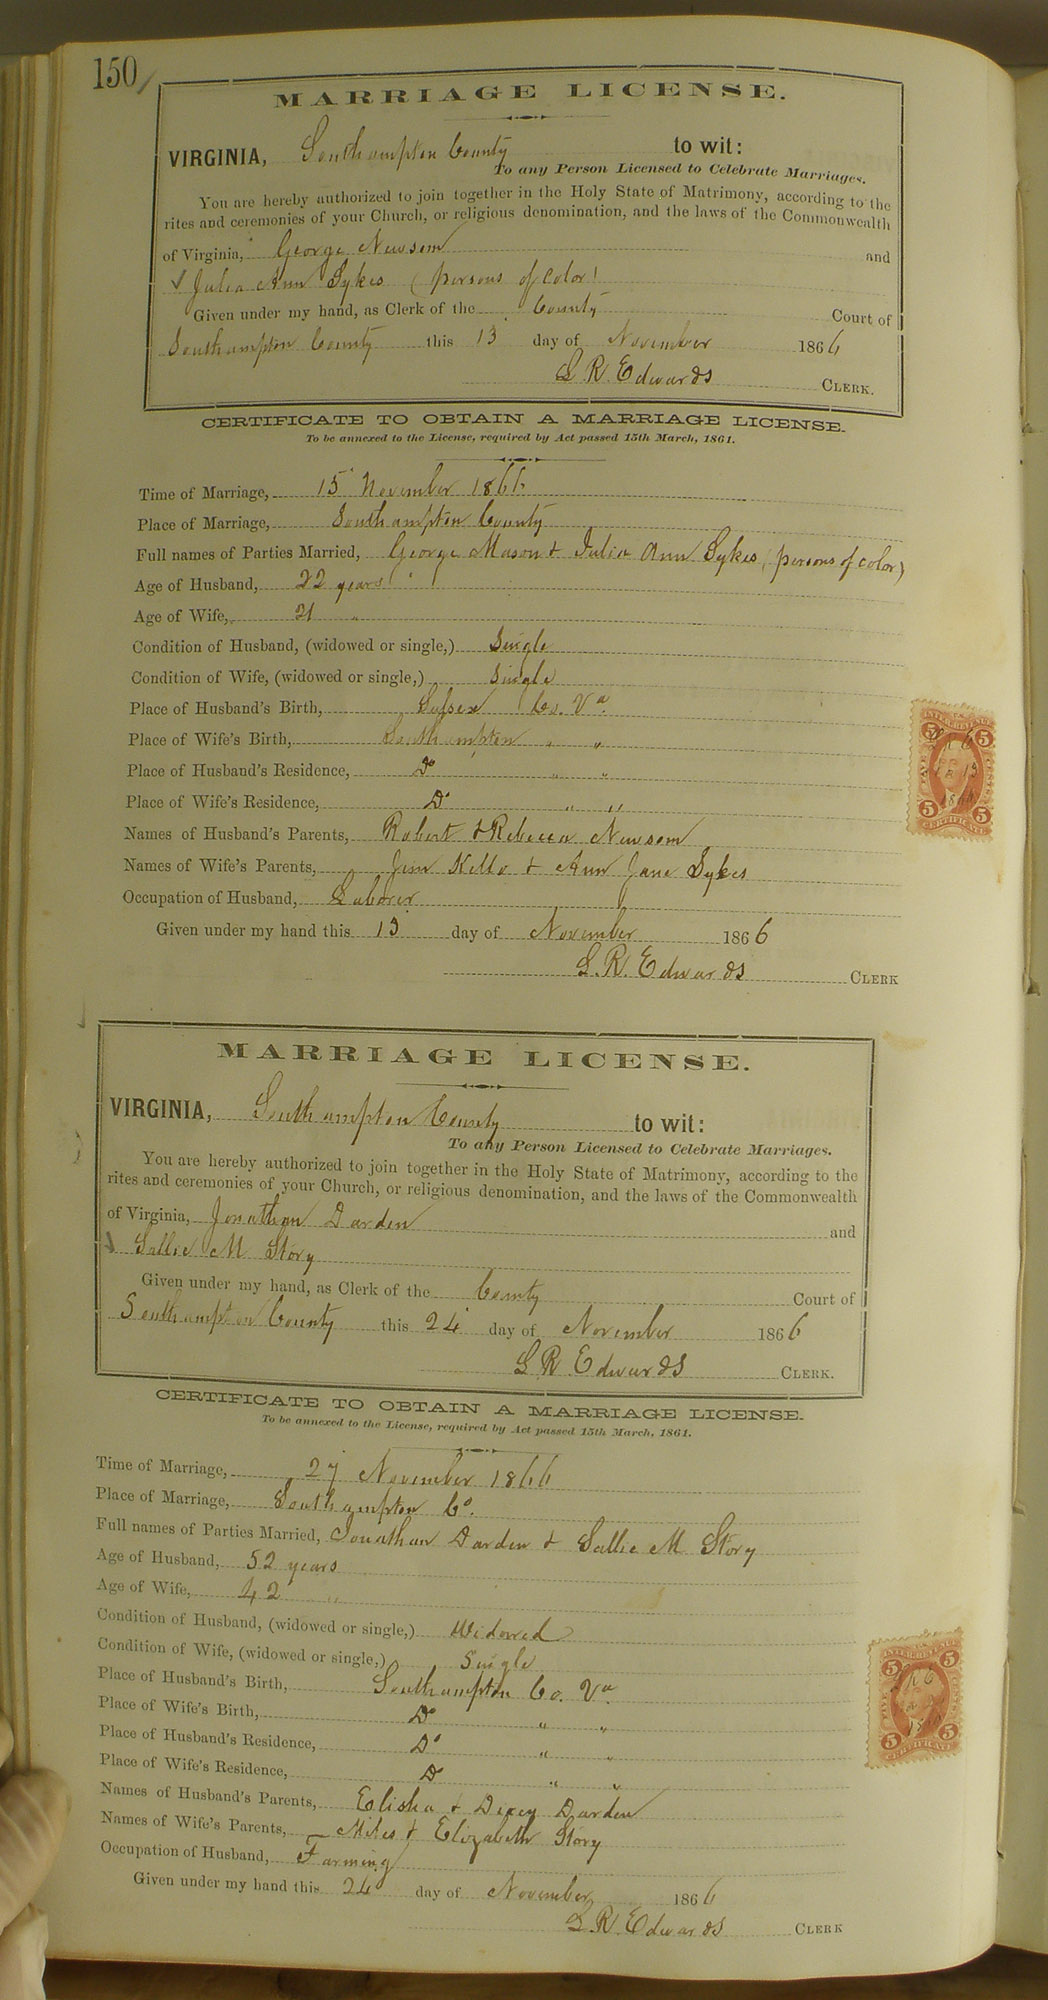 150
MARRIAGE LICENSE.
VIRGINIA, Southampton County to wit:
To any Person Licensed to Celebrate Marriages.
You are hereby authorized to join together in the Holy State of Matrimony, according to the
rites and ceremonies of your Church, or religious denomination, and the laws of the Commonwealth
of Virginia, George Newsom and
Julia Ann Sykes (persons of color)
Given under my hand, as Clerk of the County Court of
Southampton County this 13 day of November 1866
L R Edwards CLERK.
CERTIFICATE TO OBTAIN A MARRIAGE LICENSE.
To be annexed to the License, required by Act passed 15th March, 1861.
Time of Marriage, 15 November 1866
Place of Marriage, Southampton County
Full names of Parties Married, George Mason & Julia Ann Sykes (persons of color)
Age of Husband, 22 years
Age of Wife, 21 "
Condition of Husband, (widowed or single,) Single
Condition of Wife, (widowed or single,) Single
Place of Husband's Birth, Sussex Co. Va
Place of Wife's Birth, Southampton " "
Place of Husband's Residence, Do " "
Place of Wife's Residence, Do " "
Names of Husband's Parents, Robert & Rebecca Newsom
Names of Wife's Parents, Jim Kello & Ann Jane Sykes
Occupation of Husband, Laborer
Given under my hand this 13 day of November 1866
L. R. Edwards CLERK
5 5
5 5
CERTIFICATE
MARRIAGE LICENSE.
VIRGINIA, Southampton County to wit:
To any Person Licensed to Celebrate Marriages.
You are hereby authorized to join together in the Holy State of Matrimony, according to the
rites and ceremonies of your Church, or religious denomination, and the laws of the Commonwealth
of Virginia, Jonathan Darden and
Sallie M Story
Given under my hand, as Clerk of the County Court of
Southampton County this 24 day of November 1866
L R Edwards CLERK.
CERTIFICATE TO OBTAIN A MARRIAGE LICENSE.
To be annexed to the License, required by Act passed 15th March, 1861.
Time of Marriage, 27 November 1866
Place of Marriage, Southampton Co.
Full names of Parties Married, Jonathan Darden & Sallie M Story
Age of Husband, 52 years
Age of Wife, 42 "
Condition of Husband, (widowed or single,) Widowed
Condition of Wife, (widowed or single,) Single
Place of Husband's Birth, Southampton Co. Va
Place of Wife's Birth, Do " "
Place of Husband's Residence, Do " "
Place of Wife's Residence, Do " "
Names of Husband's Parents, Elisha & Dixey Darden
Names of Wife's Parents, Miles & Elizabeth Story
Occupation of Husband, Farming
Given under my hand this 24 day of November 1866
L R Edwards CLERK
5 5
5 5
CERTIFICATE